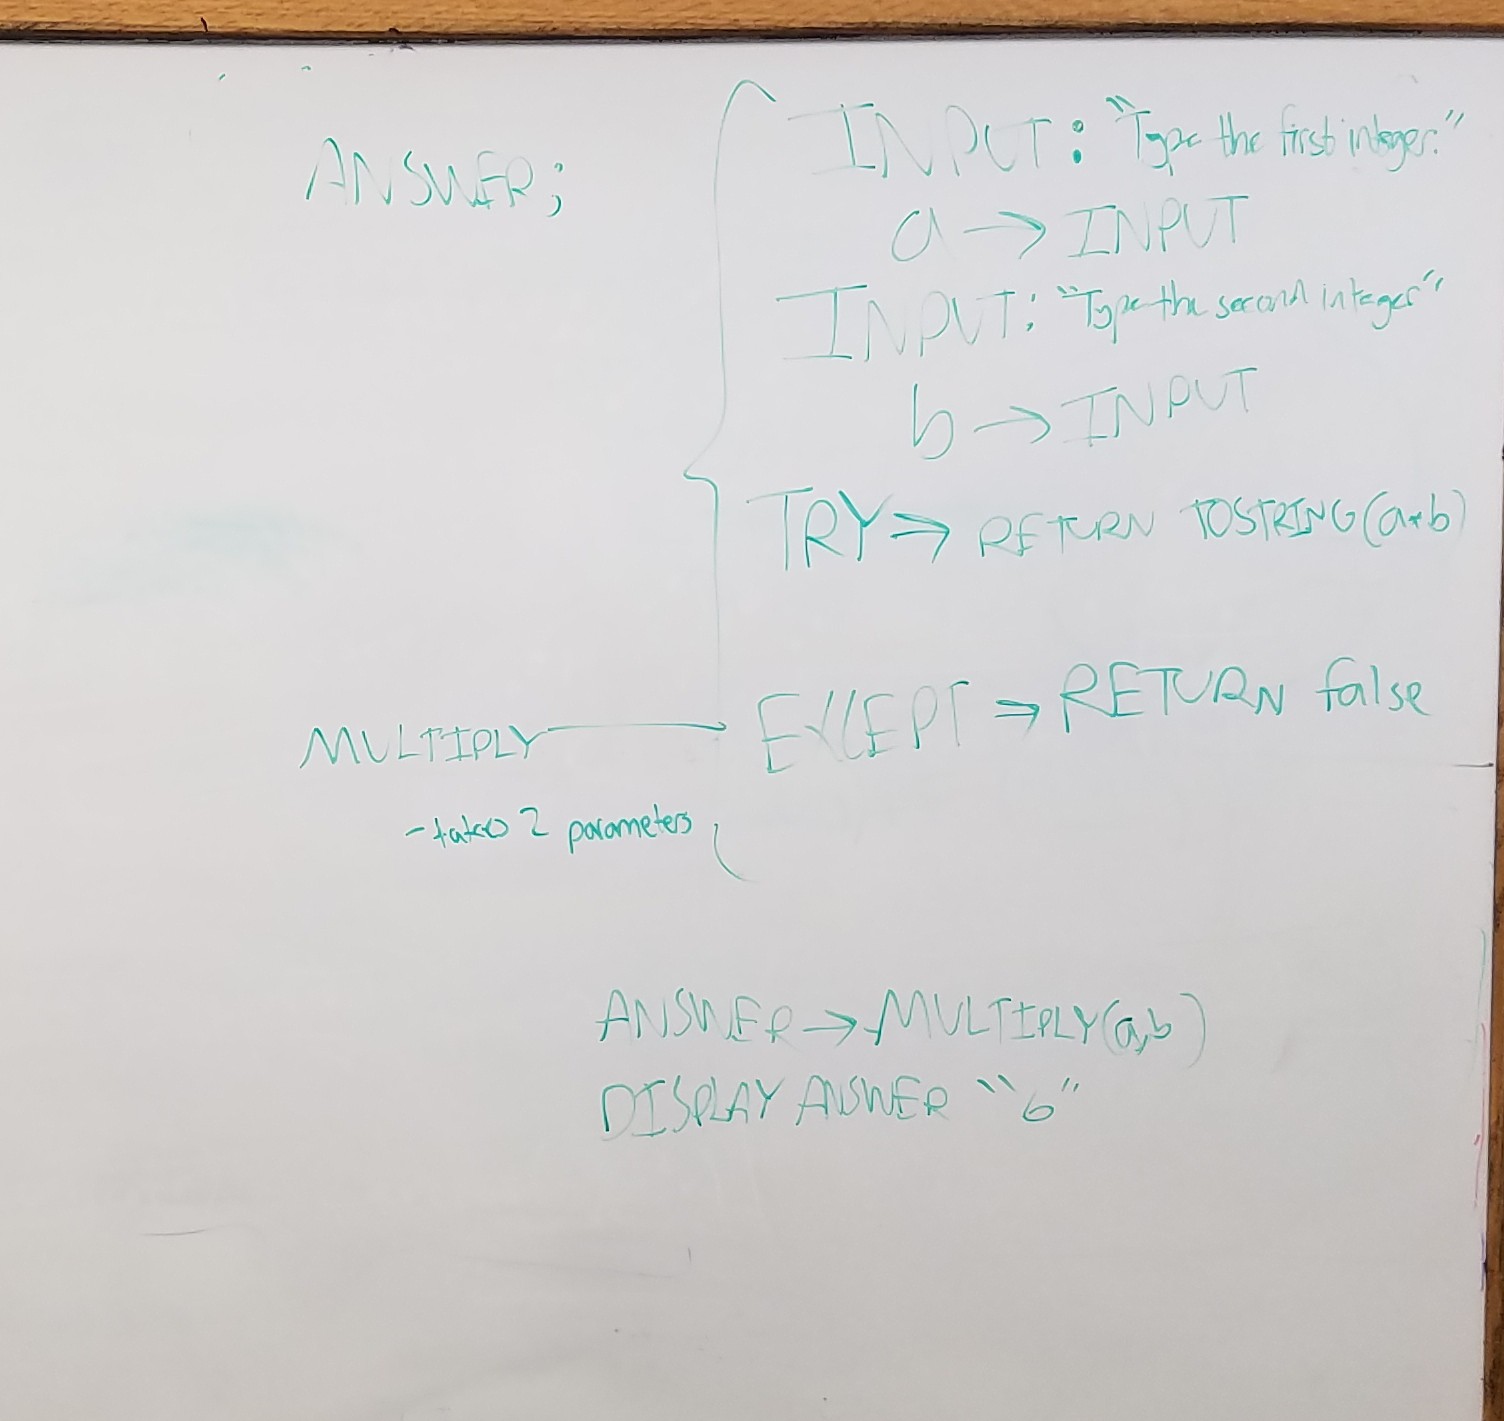 ANSWER;
INPUT: "Type the first integer:"
a → INPUT
INPUT: "Type the second integer"
b → INPUT
TRY ⇒ RETURN TOSTRING(a*b)
EXCEPT ⇒ RETURN false
MULTIPLY
- takes 2 parameters
ANSWER → MULTIPLY(a,b)
DISPLAY ANSWER "6"